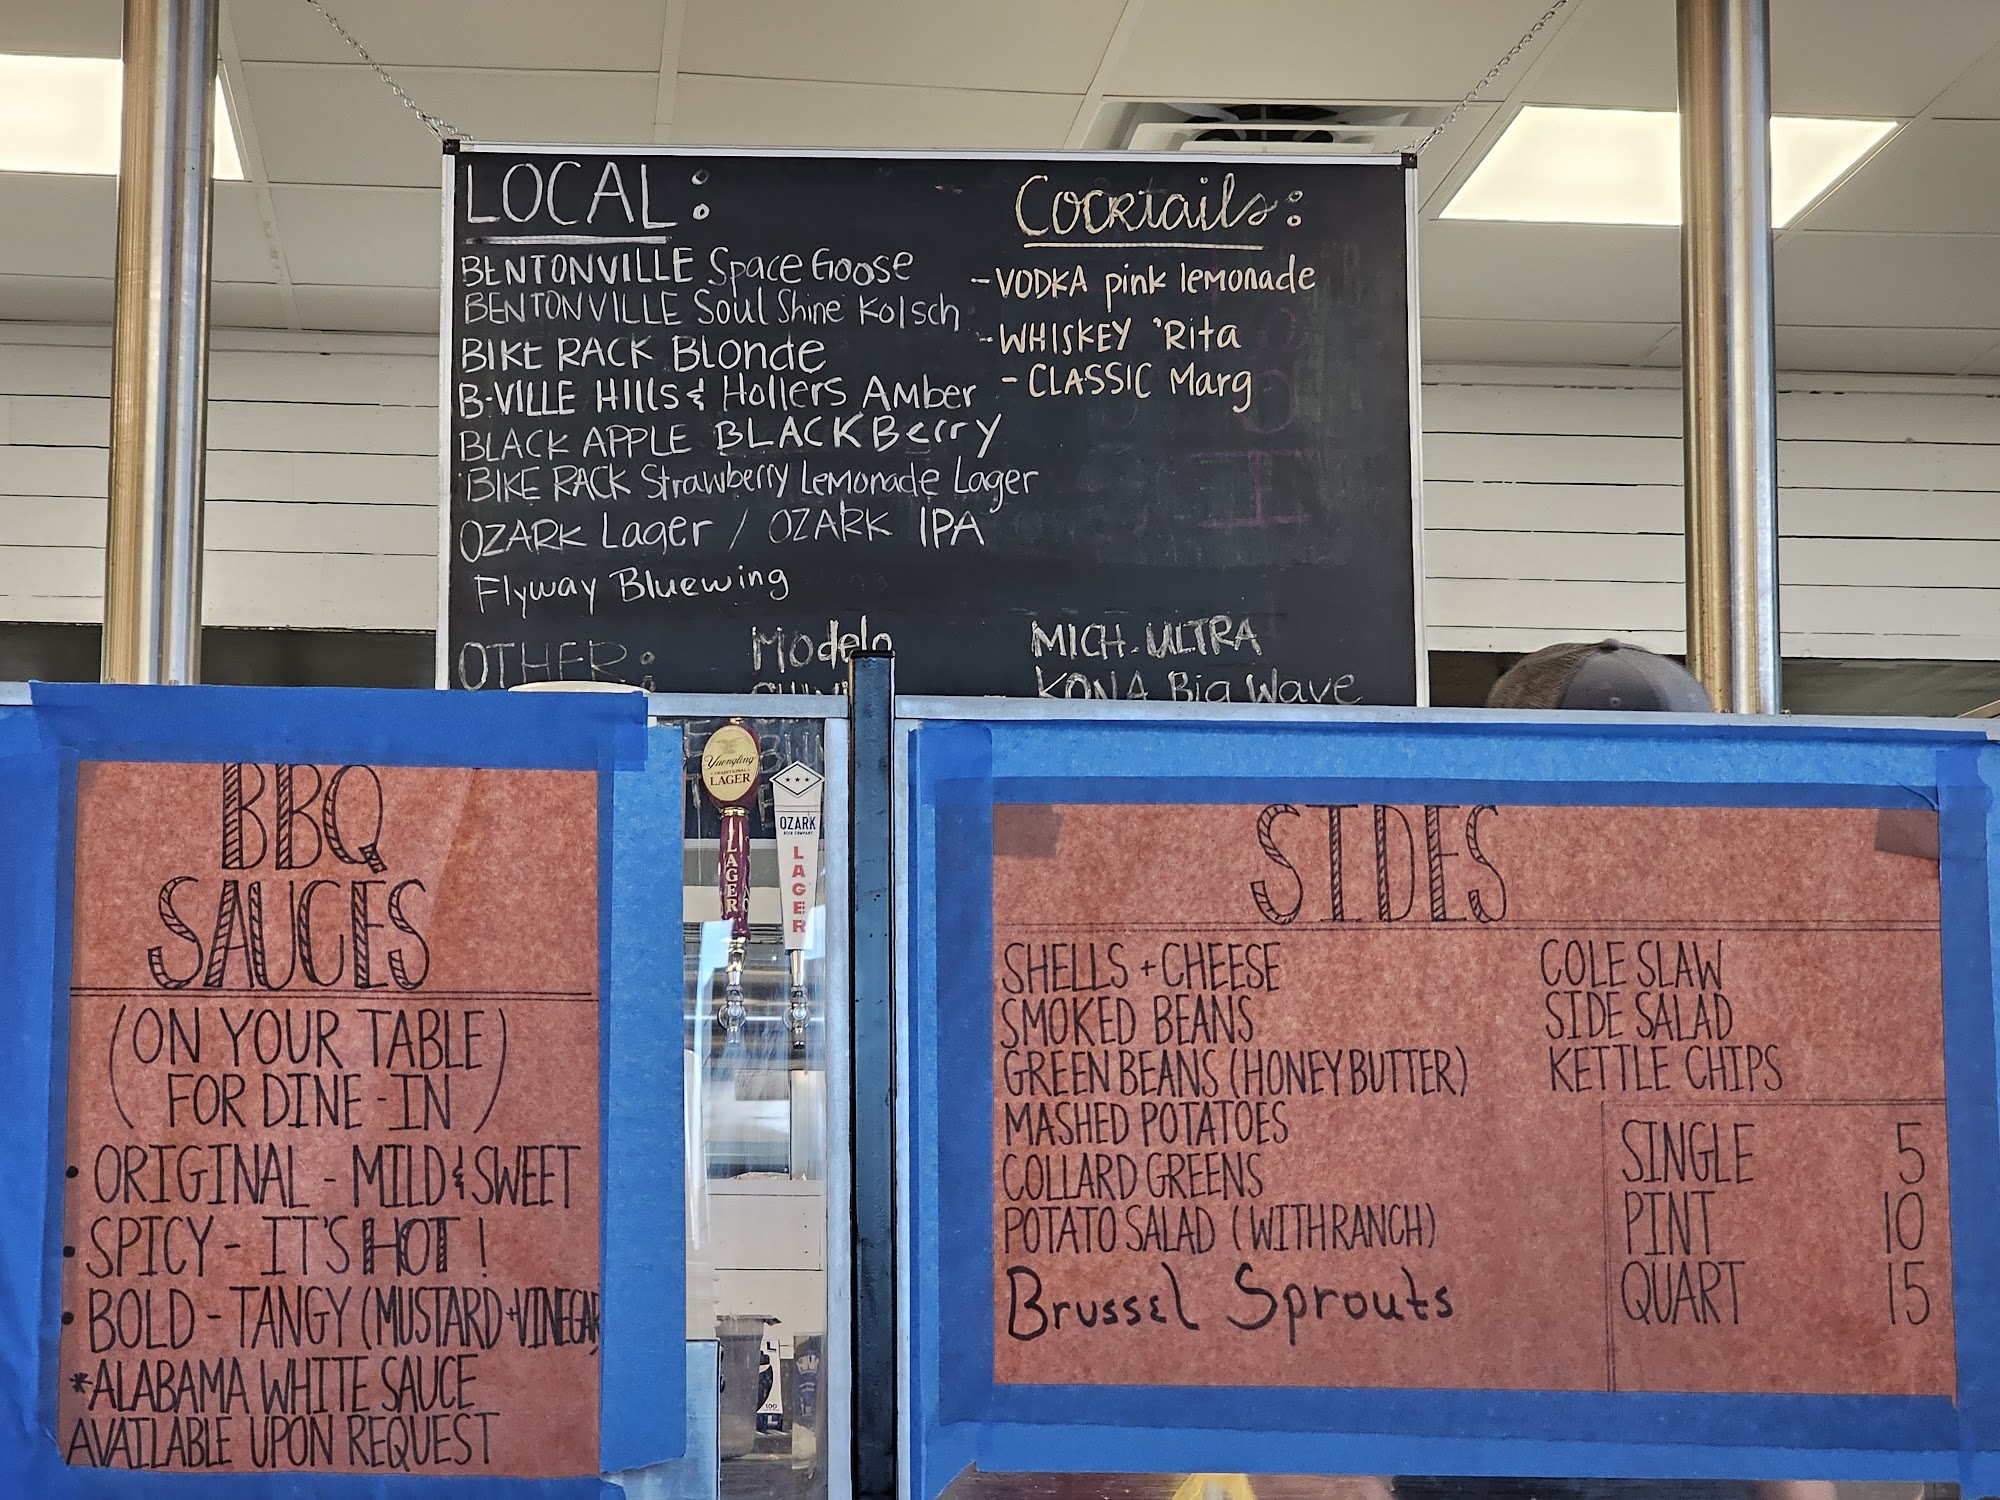 LOCAL:
BENTONVILLE Space Goose
BENTONVILLE Soul Shine Kolsch
BIKE RACK Blonde
B-VILLE HIlls & Hollers Amber
BLACK APPLE BLACKBerry
BIKE RACK Strawberry Lemonade Lager
OZARK Lager / OZARK IPA
Flyway Bluewing
Cocktails:
-VODKA pink lemonade
-WHISKEY 'Rita
-CLASSIC Marg
OTHER:
Modelo
MICH. ULTRA
KONA Big Wave
BBQ
SAUCES
(ON YOUR TABLE)
(FOR DINE-IN)
• ORIGINAL - MILD & SWEET
• SPICY - IT'S HOT!
• BOLD - TANGY (MUSTARD + VINEGAR)
*ALABAMA WHITE SAUCE
AVAILABLE UPON REQUEST
Yuengling
TRADITIONAL
LAGER
LAGER
OZARK
BEER COMPANY
LAGER
SIDES
SHELLS + CHEESE
SMOKED BEANS
GREEN BEANS (HONEY BUTTER)
MASHED POTATOES
COLLARD GREENS
POTATO SALAD (WITH RANCH)
Brussel Sprouts
COLE SLAW
SIDE SALAD
KETTLE CHIPS
SINGLE 5
PINT 10
QUART 15